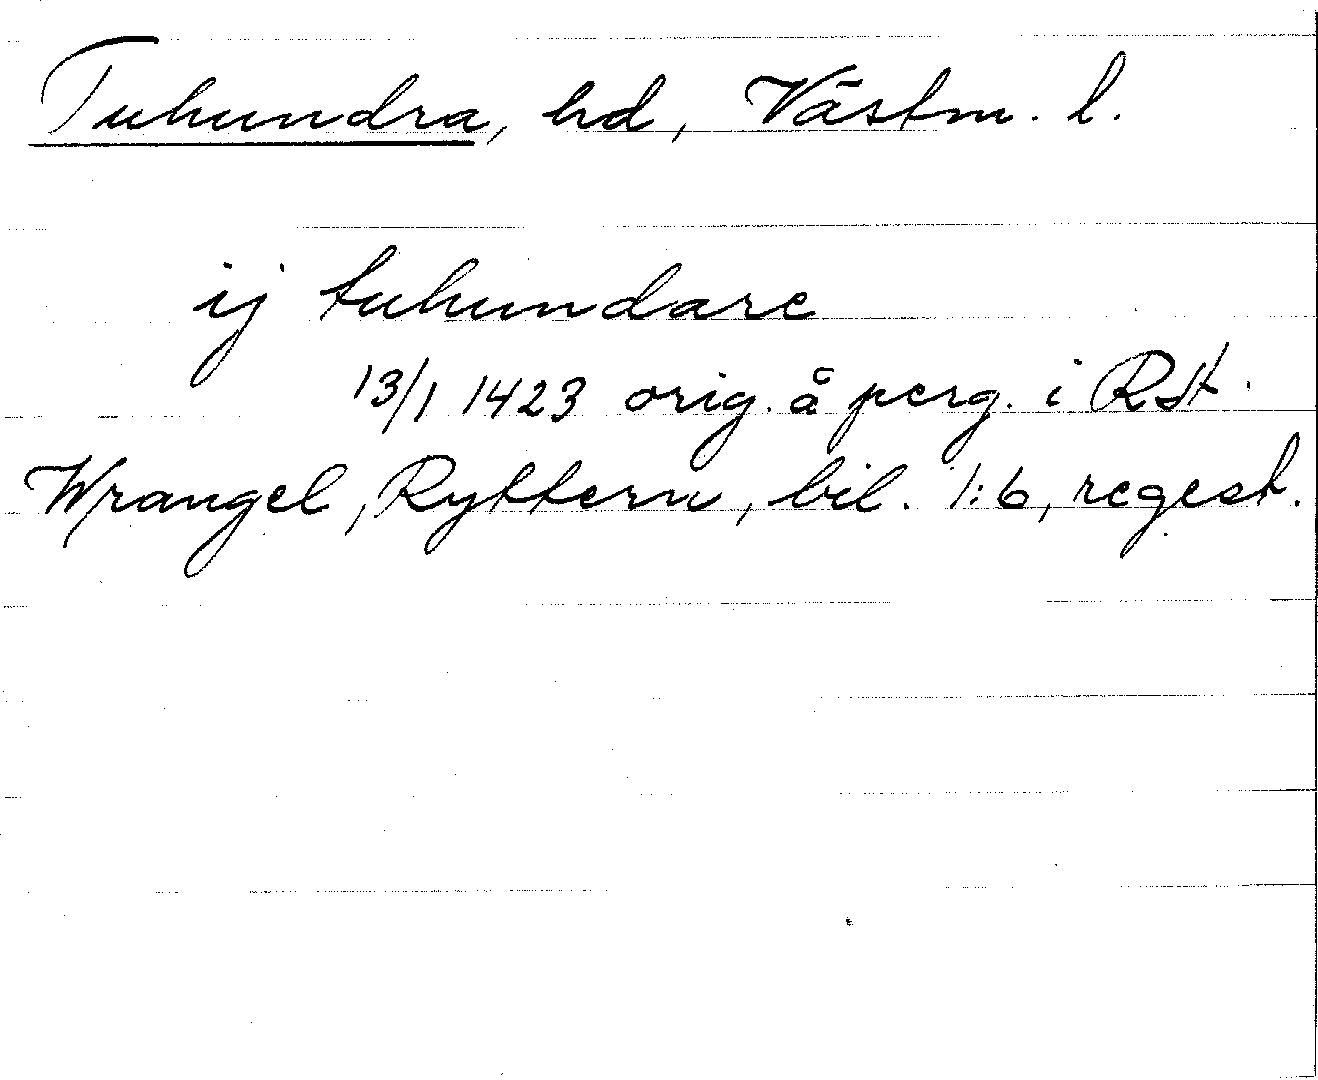 Tuhundra, hd, Västm. l.
ij tuhundare
13/1 1423 orig. å perg. i RSt.
Wrangel, Ryttern, bil. 1:6, regest.